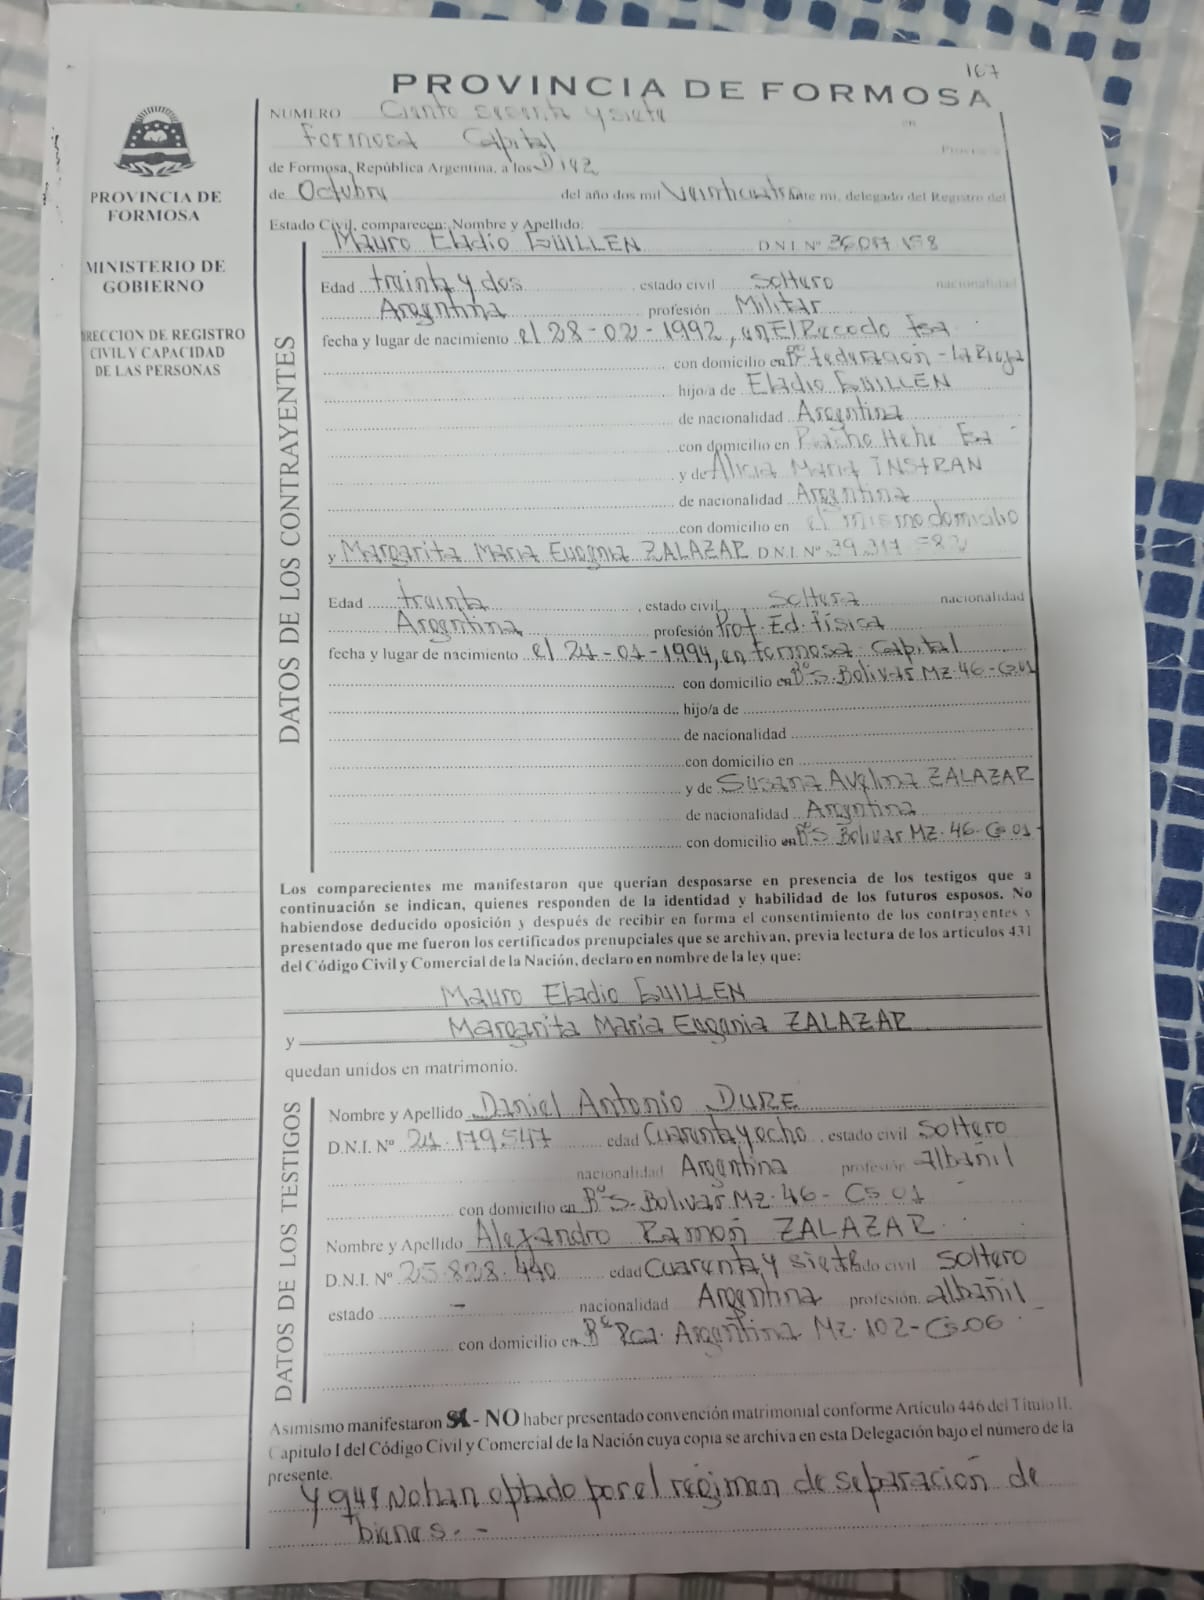 167
PROVINCIA DE FORMOSA
PROVINCIA DE
FORMOSA
MINISTERIO DE
GOBIERNO
DIRECCION DE REGISTRO
CIVIL Y CAPACIDAD
DE LAS PERSONAS
NUMERO Ciento sesenta y siete en
Formosa Capital
de Formosa, República Argentina, a los Diez
de Octubre del año dos mil Veinticuatro ante mi, delegado del Registro del
Estado Civil, comparecen: Nombre y Apellido:
DATOS DE LOS CONTRAYENTES
Mauro Eladio GUILLEN D.N.I. Nº 36.017.158
Edad treinta y dos , estado civil Soltero nacionalidad
Argentina profesión Militar
fecha y lugar de nacimiento el 28-02-1992, en El Recodo Fsa
con domicilio en Bº Federación - La Rioja
hijo/a de Eladio GUILLEN
de nacionalidad Argentina
con domicilio en
y de Alicia Maria INSFRAN
de nacionalidad Argentina
con domicilio en el mismo domicilio
y Margarita Maria Eugenia ZALAZAR D.N.I. Nº 39.317
Edad treinta , estado civil Soltera nacionalidad
Argentina profesión Prof. Ed. Física
fecha y lugar de nacimiento el 24-01-1994, en Formosa Capital
con domicilio en Bº S. Bolivar Mz. 46 - Cs 01
hijo/a de
de nacionalidad
con domicilio en
y de Susana Avelina ZALAZAR
de nacionalidad Argentina
con domicilio en Bº S Bolivar Mz. 46 - Cs 01 -
Los comparecientes me manifestaron que querían desposarse en presencia de los testigos que a
continuación se indican, quienes responden de la identidad y habilidad de los futuros esposos. No
habiendose deducido oposición y después de recibir en forma el consentimiento de los contrayentes y
presentado que me fueron los certificados prenupciales que se archivan, previa lectura de los artículos 431
del Código Civil y Comercial de la Nación, declaro en nombre de la ley que:
Mauro Eladio GUILLEN
y Margarita Maria Eugenia ZALAZAR
quedan unidos en matrimonio.
DATOS DE LOS TESTIGOS
Nombre y Apellido Daniel Antonio DURE
D.N.I. Nº 24.179.547 edad Cuarenta y ocho , estado civil Soltero
nacionalidad Argentina profesión albañil
con domicilio en Bº S. Bolivar Mz. 46 - Cs 01
Nombre y Apellido Alejandro Ramón ZALAZAR
D.N.I. Nº 25.828.440 edad Cuarenta y siete estado civil Soltero
estado - nacionalidad Argentina profesión. albañil
con domicilio en Bº Rca. Argentina Mz. 102 - Cs 06
Asimismo manifestaron SI - NO haber presentado convención matrimonial conforme Artículo 446 del Título II.
Capitulo I del Código Civil y Comercial de la Nación cuya copia se archiva en esta Delegación bajo el número de la
presente.
y que No han optado por el régimen de separación de
bienes. -